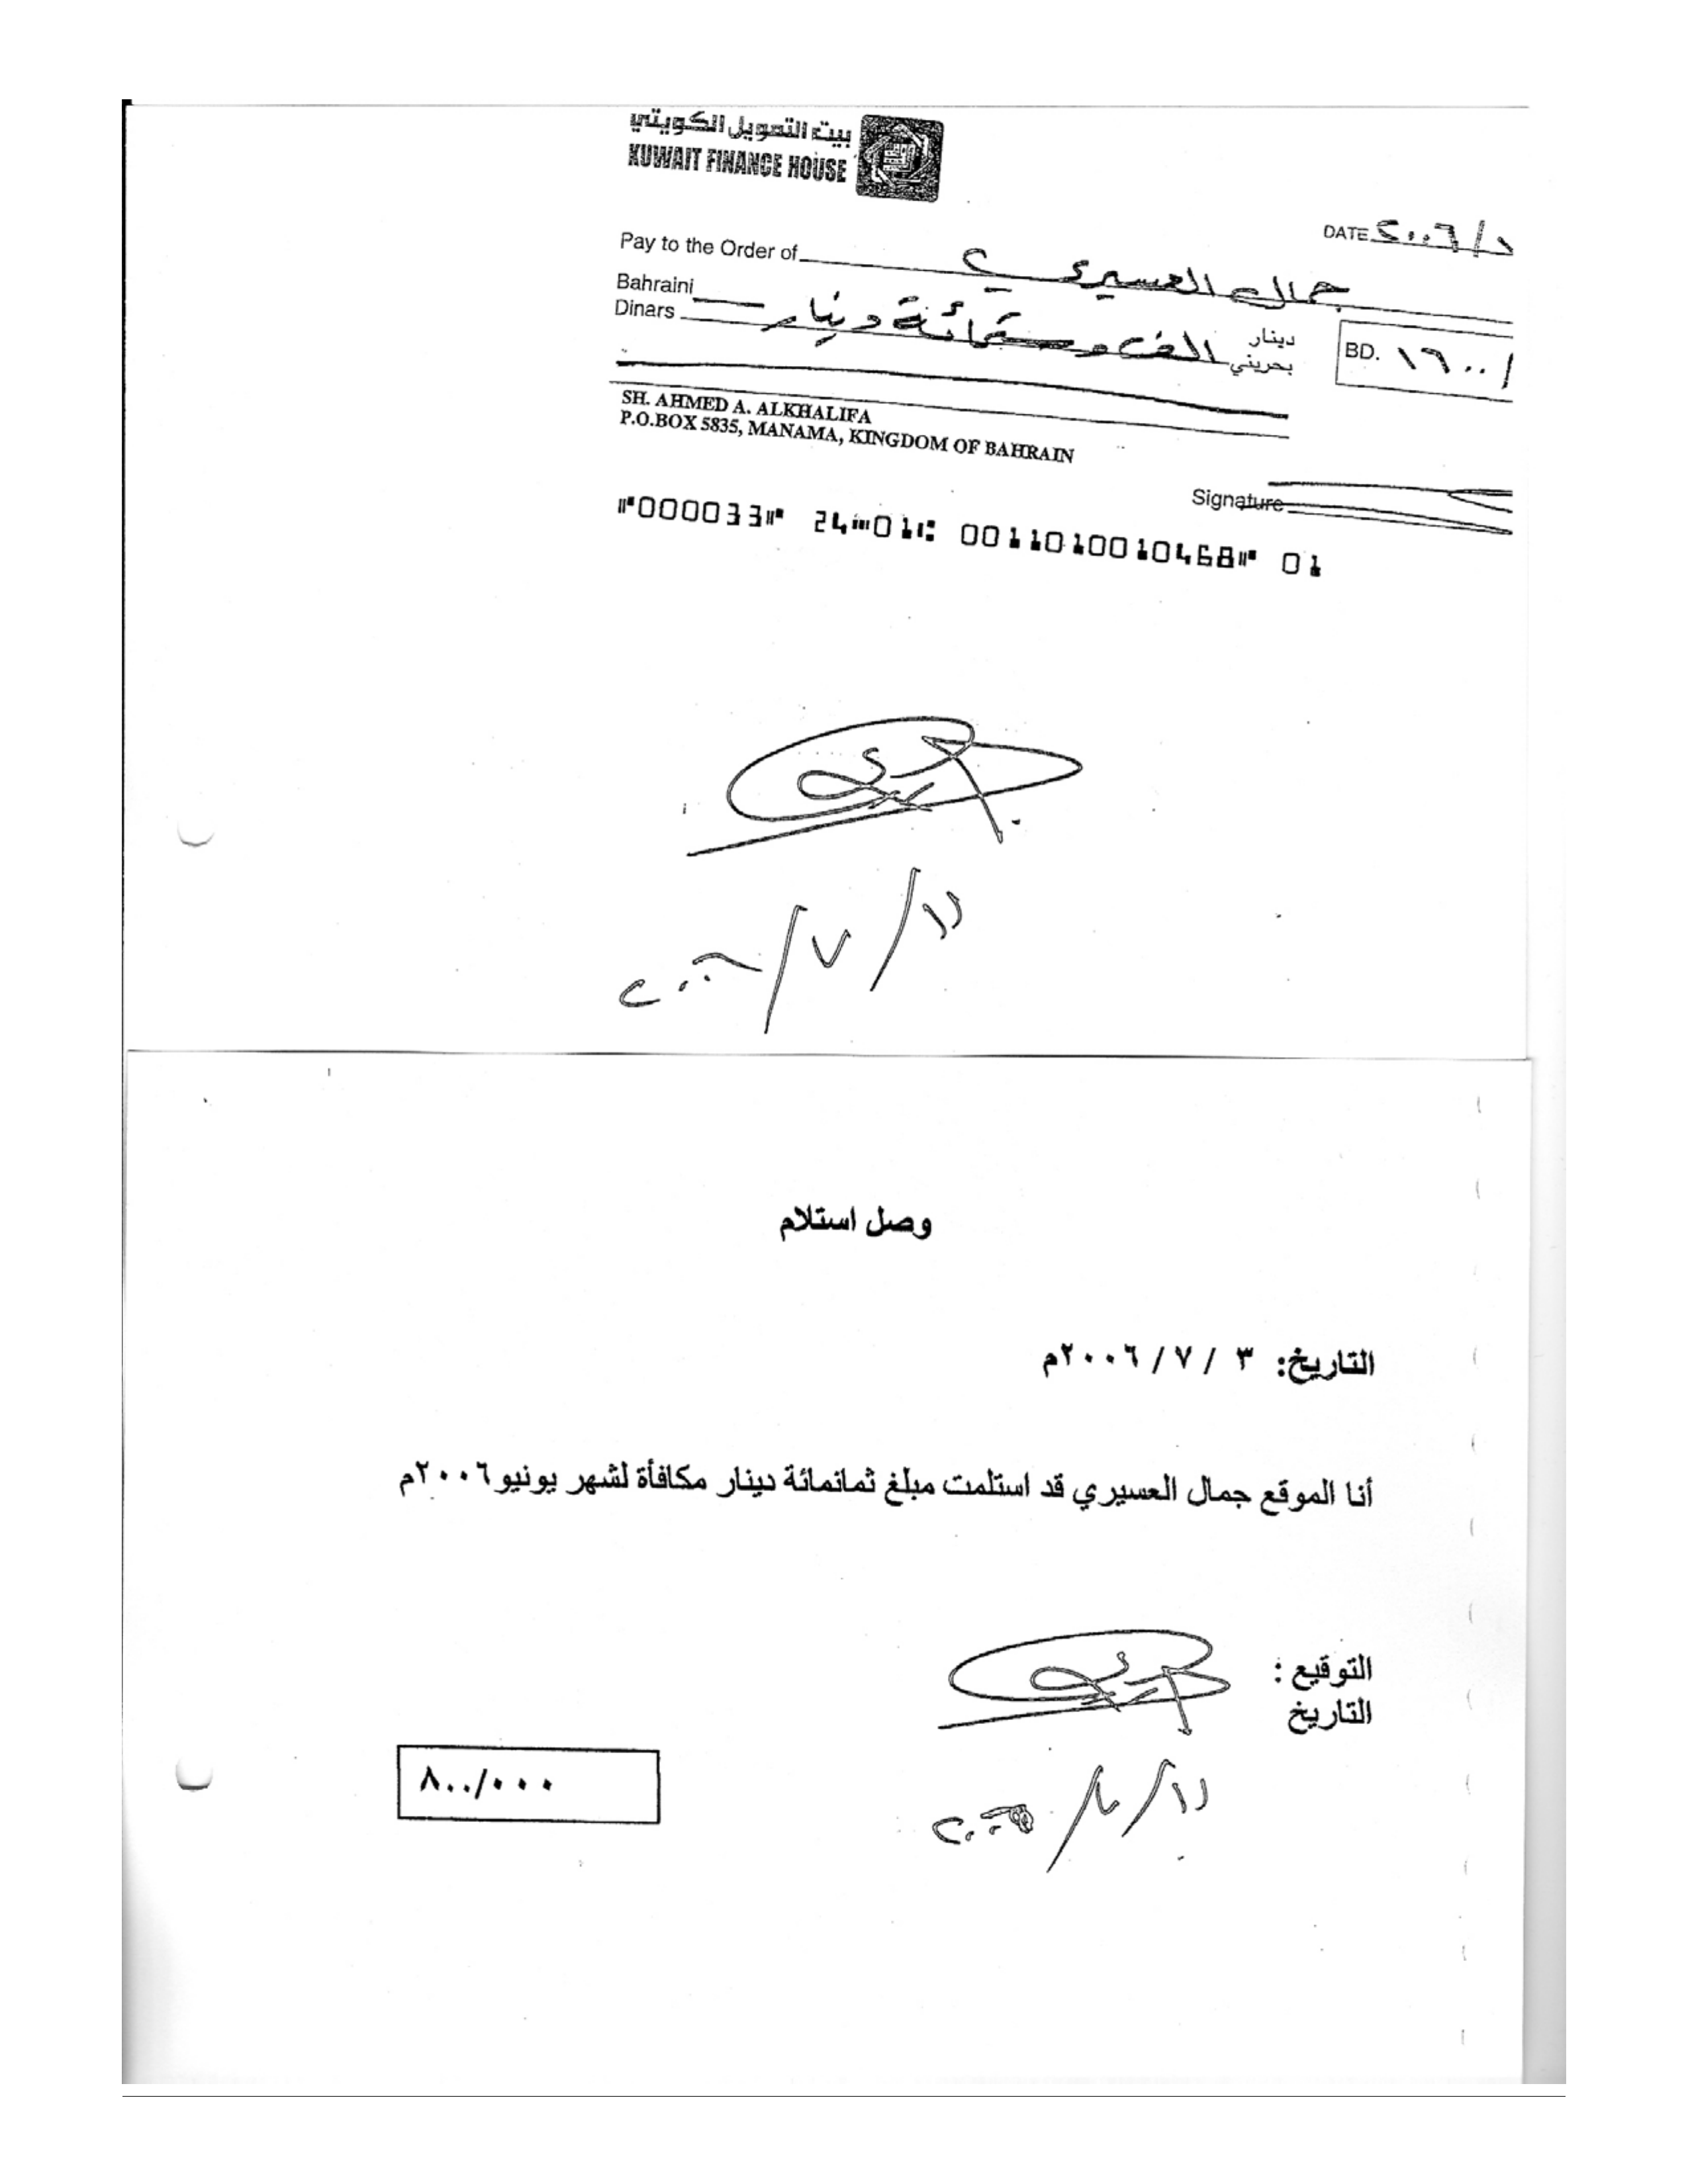 بيت التمويل الكويتي
KUWAIT FINANCE HOUSE
DATE ٢٠٠٦/
Pay to the Order of جمال العسيري
Bahraini Dinars الف و ستمائة دينار دينار بحريني
BD. ١٦٠٠/
SH. AHMED A. ALKHALIFA
P.O.BOX 5835, MANAMA, KINGDOM OF BAHRAIN
Signature
⑈000033⑈ 24⑉01⑆ 0011010010468⑈ 01
٢٠٠٦/٧/١١
وصل استلام
التاريخ: ٣ / ٧ / ٢٠٠٦م
أنا الموقع جمال العسيري قد استلمت مبلغ ثمانمائة دينار مكافأة لشهر يونيو ٢٠٠٦م
التوقيع :
التاريخ
٨٠٠/٠٠٠